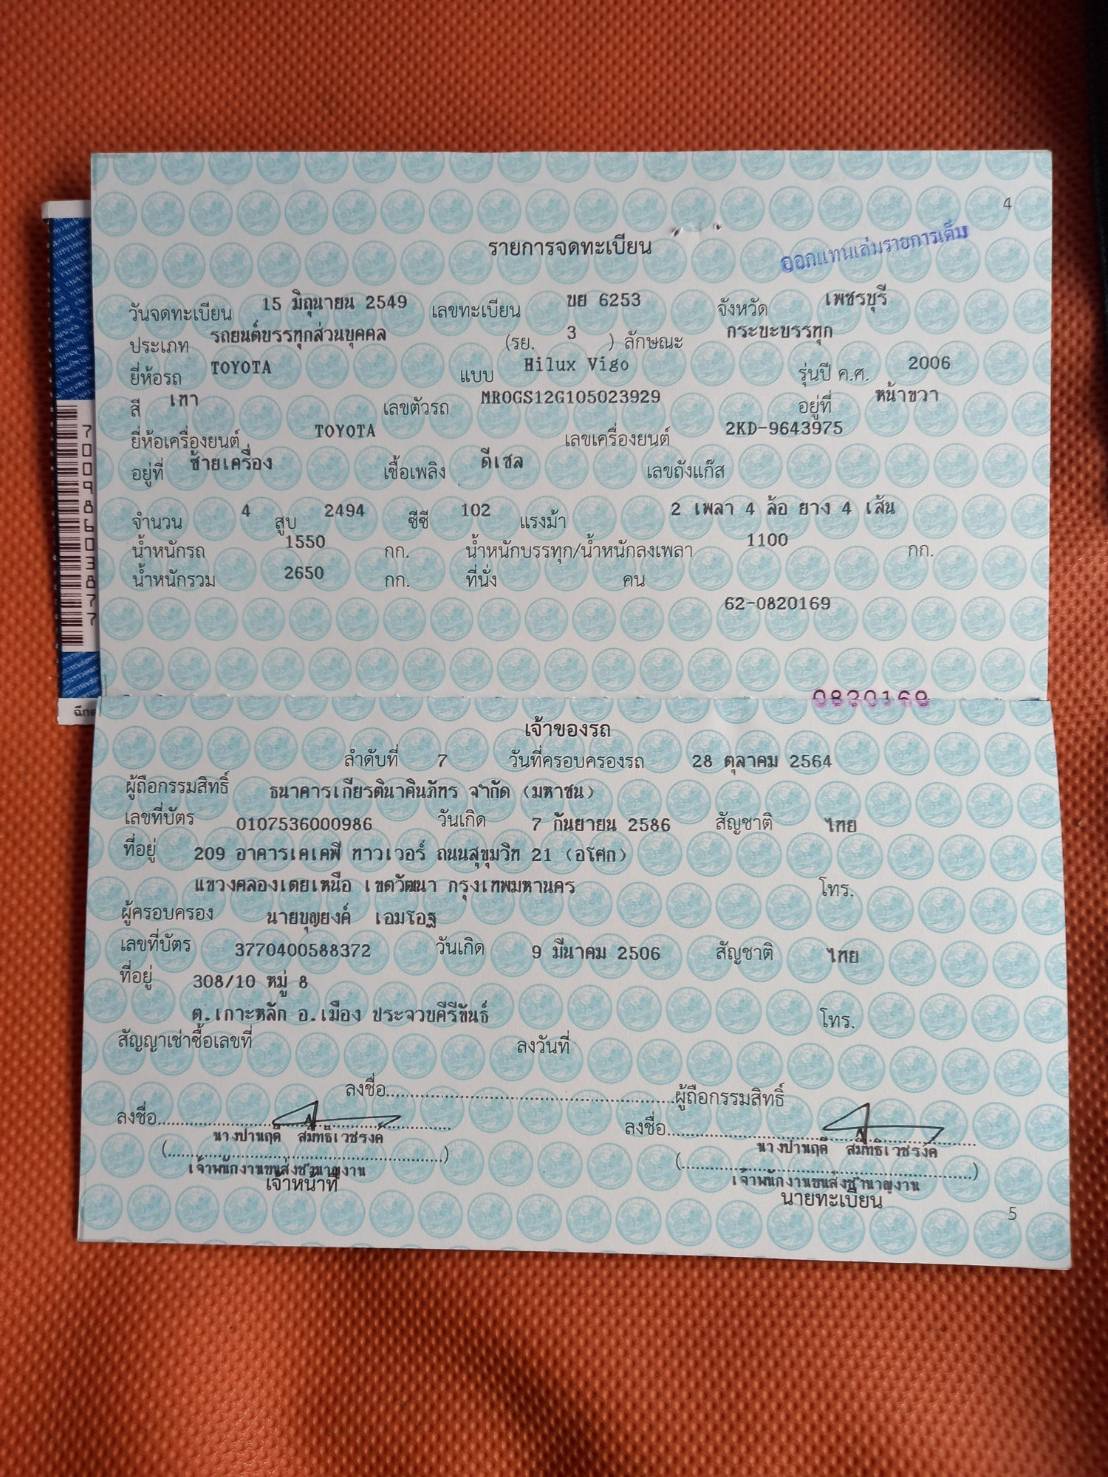 4
รายการจดทะเบียน
ออกแทนเล่มรายการเต็ม
วันจดทะเบียน 15 มิถุนายน 2549 เลขทะเบียน ขย 6253 จังหวัด เพชรบุรี
ประเภท รถยนต์บรรทุกส่วนบุคคล (รย. 3 ) ลักษณะ กระบะบรรทุก
ยี่ห้อรถ TOYOTA แบบ Hilux Vigo รุ่นปี ค.ศ. 2006
สี เทา เลขตัวรถ MR0GS12G105023929 อยู่ที่ หน้าขวา
ยี่ห้อเครื่องยนต์ TOYOTA เลขเครื่องยนต์ 2KD-9643975
อยู่ที่ ซ้ายเครื่อง เชื้อเพลิง ดีเซล เลขถังแก๊ส
จำนวน 4 สูบ 2494 ซีซี 102 แรงม้า 2 เพลา 4 ล้อ ยาง 4 เส้น
น้ำหนักรถ 1550 กก. น้ำหนักบรรทุก/น้ำหนักลงเพลา 1100 กก.
น้ำหนักรวม 2650 กก. ที่นั่ง คน
62-0820169
70098603877
0820169
เจ้าของรถ
ลำดับที่ 7 วันที่ครอบครองรถ 28 ตุลาคม 2564
ผู้ถือกรรมสิทธิ์ ธนาคารเกียรตินาคินภัทร จำกัด (มหาชน)
เลขที่บัตร 0107536000986 วันเกิด 7 กันยายน 2586 สัญชาติ ไทย
ที่อยู่ 209 อาคารเคเคพี ทาวเวอร์ ถนนสุขุมวิท 21 (อโศก)
แขวงคลองเตยเหนือ เขตวัฒนา กรุงเทพมหานคร โทร.
ผู้ครอบครอง นายบุญยงค์ เอมโอฐ
เลขที่บัตร 3770400588372 วันเกิด 9 มีนาคม 2506 สัญชาติ ไทย
ที่อยู่ 308/10 หมู่ 8
ต.เกาะหลัก อ.เมือง ประจวบคีรีขันธ์ โทร.
สัญญาเช่าซื้อเลขที่ ลงวันที่
ลงชื่อ ผู้ถือกรรมสิทธิ์
ลงชื่อ ลงชื่อ
นางปานฤดี นางปานฤดี
เจ้าพนักงานขนส่งชำนาญงาน เจ้าพนักงานขนส่งชำนาญงาน
เจ้าหน้าที่ นายทะเบียน
5